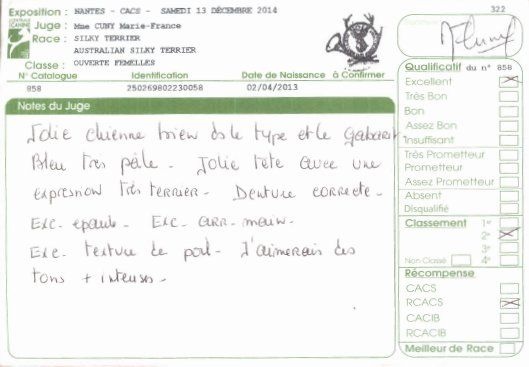 Exposition : NANTES - CACS - SAMEDI 13 DÉCEMBRE 2014
322
Juge : Mme CUNY Marie-France
Race : SILKY TERRIER
AUSTRALIAN SILKY TERRIER
Classe : OUVERTE FEMELLES
N° Catalogue Identification Date de Naissance à Confirmer
858 250269802230058 02/04/2013
Notes du Juge
Jolie chienne bien ds le type et le gabarit
Bleu très pâle - Jolie tête avec une
expression très terrier - Denture correcte -
Exc. epaule - Exc. arr-main -
Exc. texture de poil - J'aimerais des
tons + intenses -
Qualificatif du n° 858
Excellent
Très Bon
Bon
Assez Bon
Insuffisant
Très Prometteur
Prometteur
Assez Prometteur
Absent
Disqualifié
Classement 1er
2e
3e
Non Classé 4e
Récompense
CACS
RCACS
CACIB
RCACIB
Meilleur de Race